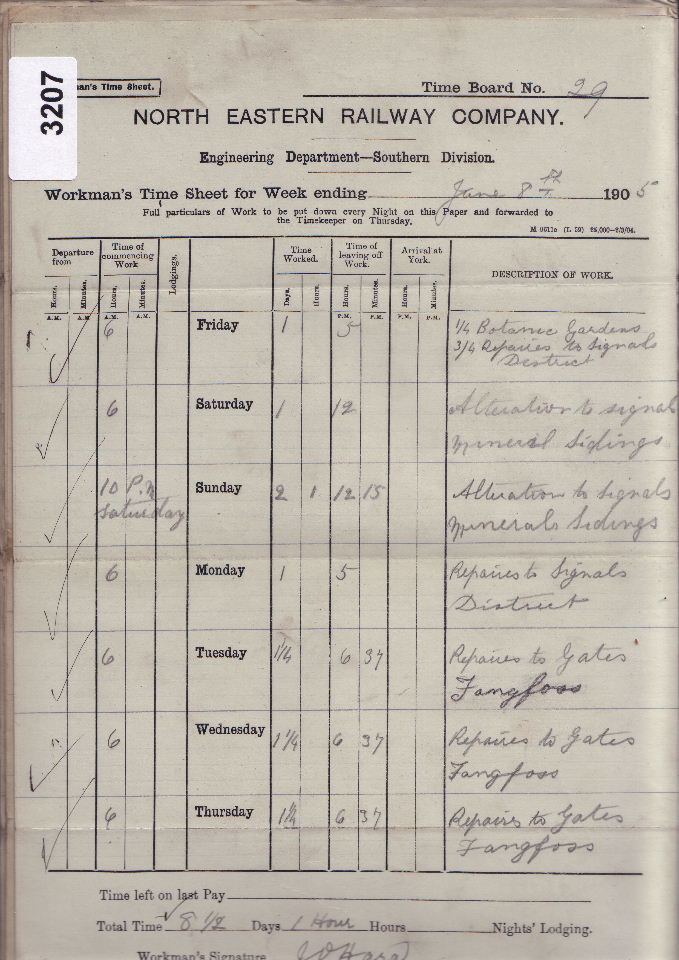 3207
man's Time Sheet.
Time Board No. 29
NORTH EASTERN RAILWAY COMPANY.
Engineering Department—Southern Division.
Workman's Time Sheet for Week ending June 8th 1905
Full particulars of Work to be put down every Night on this Paper and forwarded to
the Timekeeper on Thursday.
M 9611c (L 59) 25,000—2/3/04.
Departure from
Time of commencing Work
Lodgings.
Time Worked.
Time of leaving off Work.
Arrival at York.
DESCRIPTION OF WORK.
Hours. Minutes. Hours. Minutes. Days. Hours. Hours. Minutes. Hours. Minutes.
A.M. A.M. A.M. A.M. P.M. P.M. P.M. P.M.
6 Friday 1 5 1/4 Botanic Gardens
3/4 Repaires to Signals
District
6 Saturday 1 12 Alteration to signal
Mineral Sidings
10 P.M Sunday 2 1 12 15 Alteration to signals
Saturday Minerals Sidings
6 Monday 1 5 Repaires to Signals
District
6 Tuesday 1 1/4 6 37 Repaires to Gates
Fangfoss
6 Wednesday 1 1/4 6 37 Repaires to Gates
Fangfoss
6 Thursday 1 1/4 6 37 Repaires to Gates
Fangfoss
Time left on last Pay
Total Time 8 1/2 Days 1 Hour Hours Nights' Lodging.
Workman's Signature